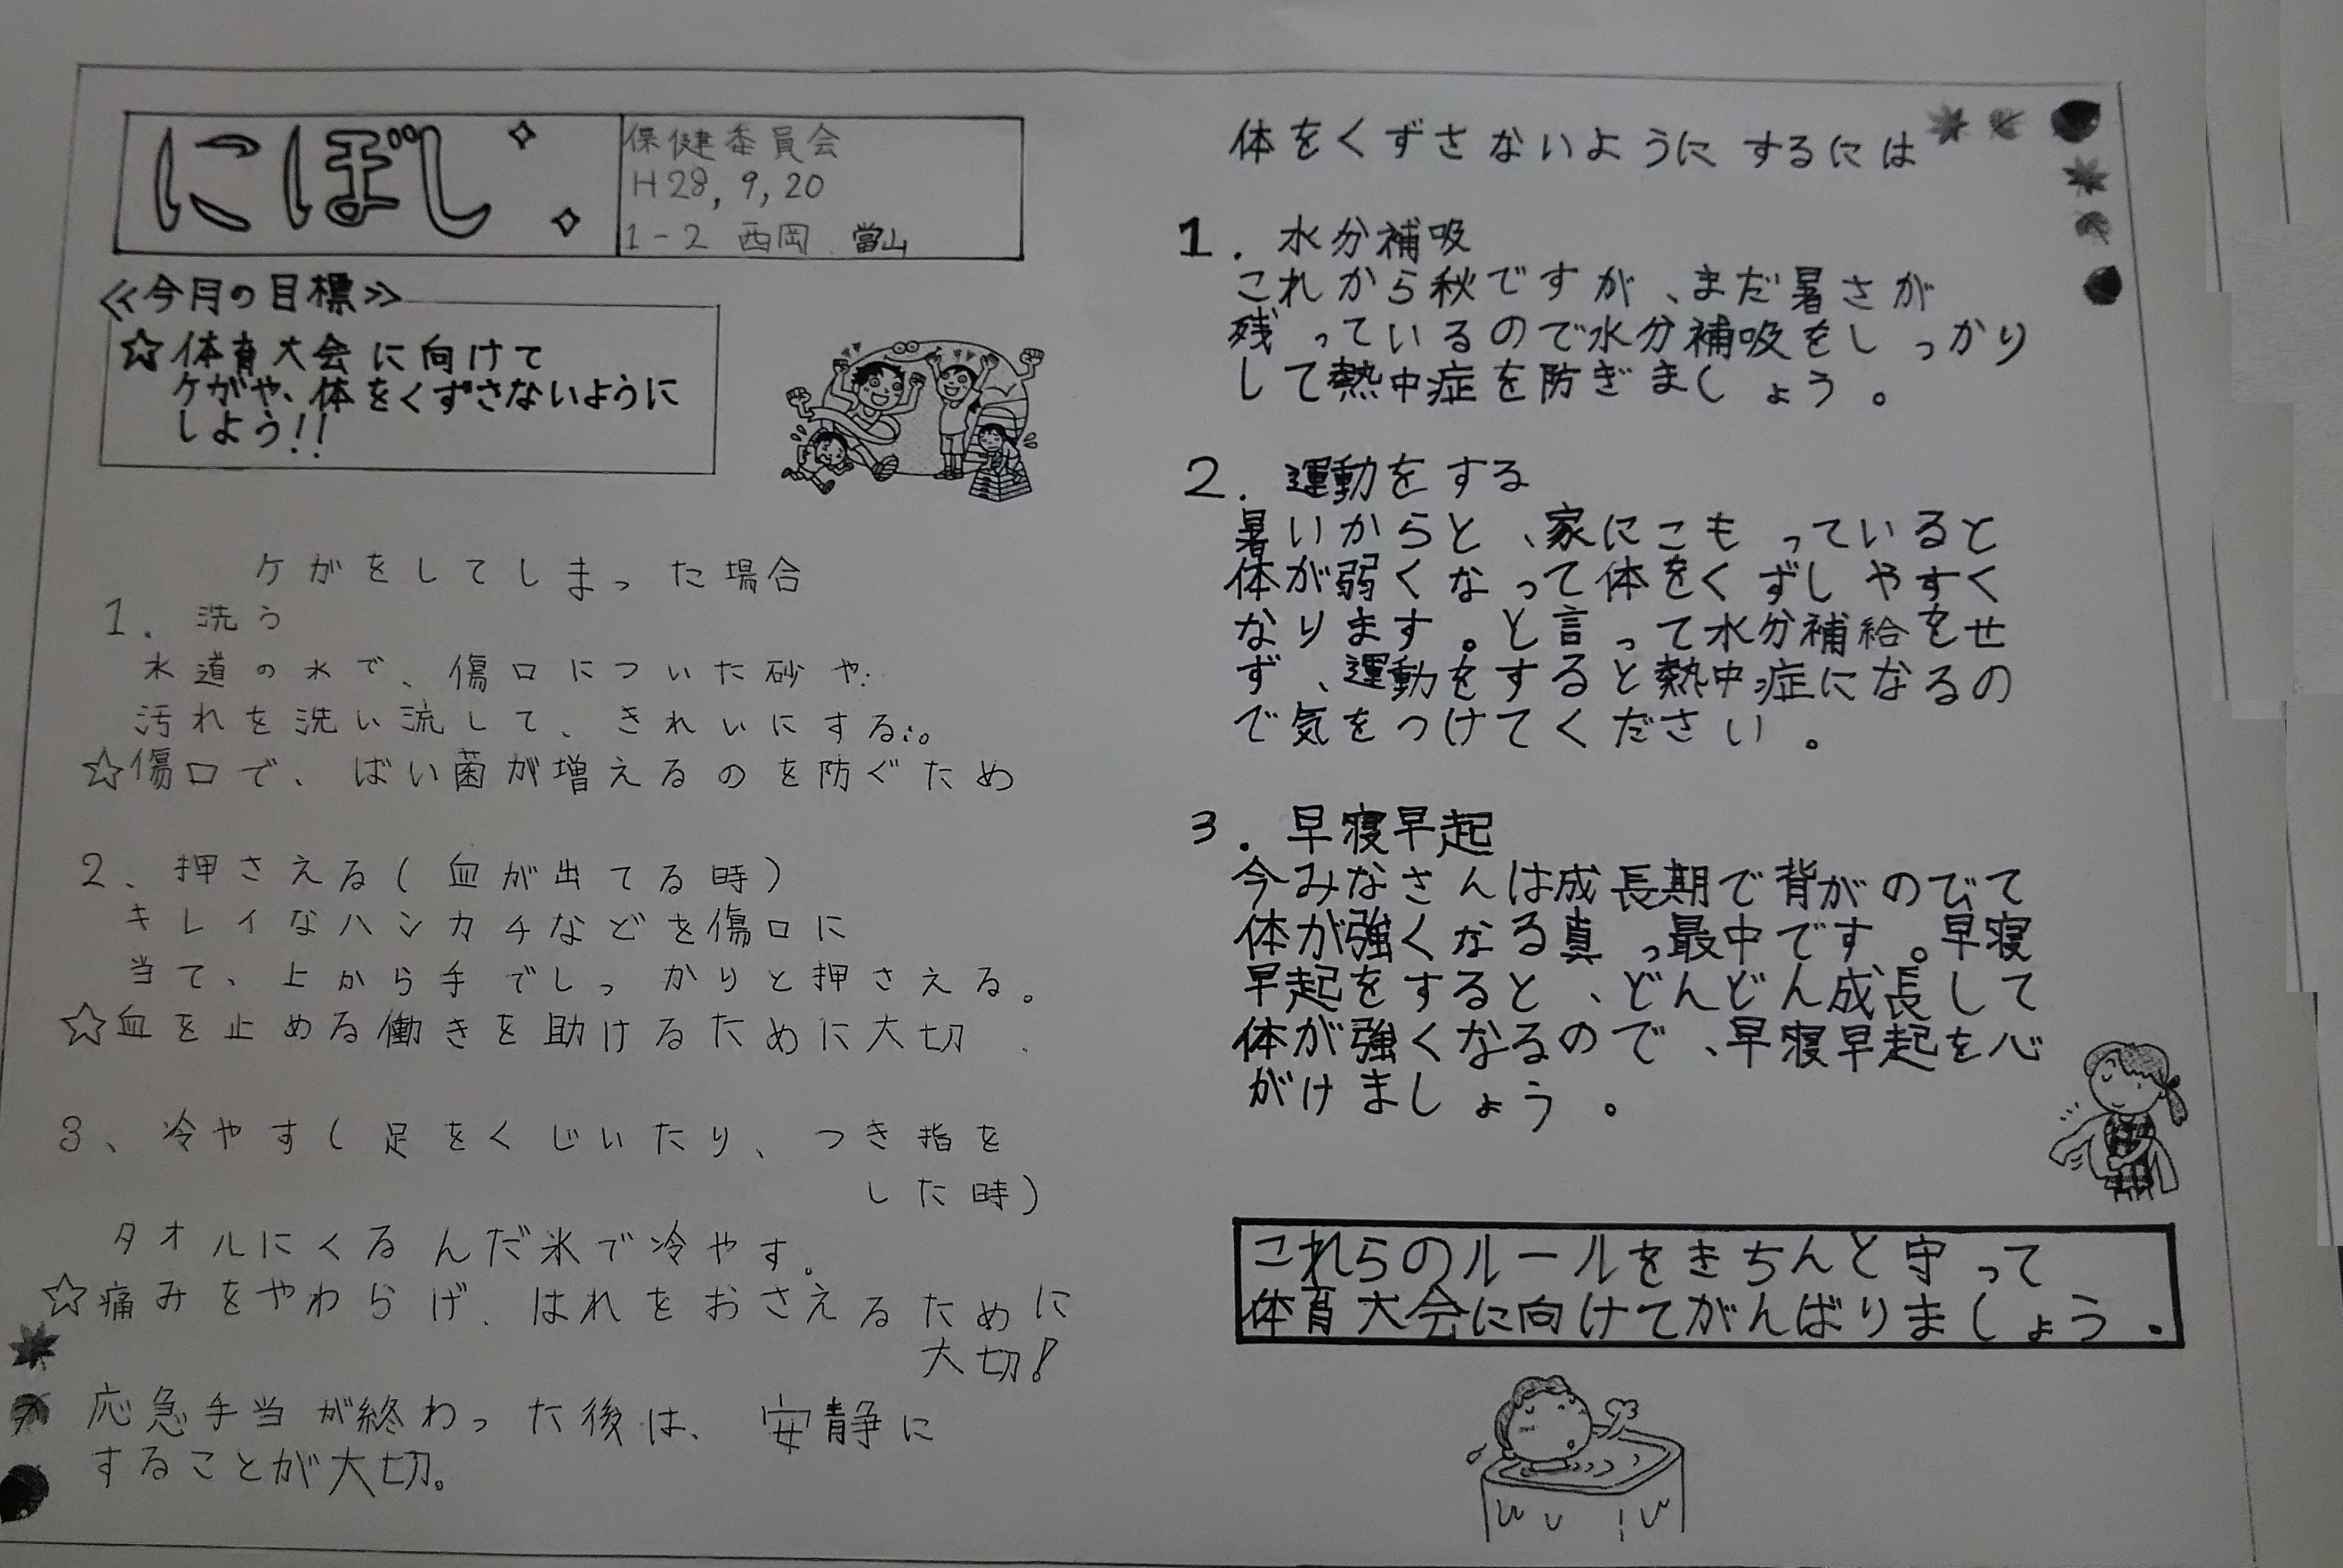 にぼし
保健委員会
H28, 9, 20
1-2 西岡 當山
≪今月の目標≫
☆体育大会に向けて
ケガや、体をくずさないように
しよう!!
ケガをしてしまった場合
1. 洗う
水道の水で、傷口についた砂や
汚れを洗い流して、きれいにする。
☆傷口で、ばい菌が増えるのを防ぐため
2、押さえる(血が出てる時)
キレイなハンカチなどを傷口に
当て、上から手でしっかりと押さえる。
☆血を止める働きを助けるために大切
3、冷やす(足をくじいたり、つき指を
した時)
タオルにくるんだ氷で冷やす。
☆痛みをやわらげ、はれをおさえるために
大切!
応急手当が終わった後は、安静に
することが大切。
体をくずさないようにするには
1. 水分補吸
これから秋ですが、まだ暑さが
残っているので水分補吸をしっかり
して熱中症を防ぎましょう。
2. 運動をする
暑いからと、家にこもっていると
体が弱くなって体をくずしやすく
なります。と言って水分補給をせ
ず、運動をすると熱中症になるの
で気をつけてください。
3. 早寝早起
今みなさんは成長期で背がのびて
体が強くなる真っ最中です。早寝
早起をすると、どんどん成長して
体が強くなるので、早寝早起を心
がけましょう。
これらのルールをきちんと守って
体育大会に向けてがんばりましょう。